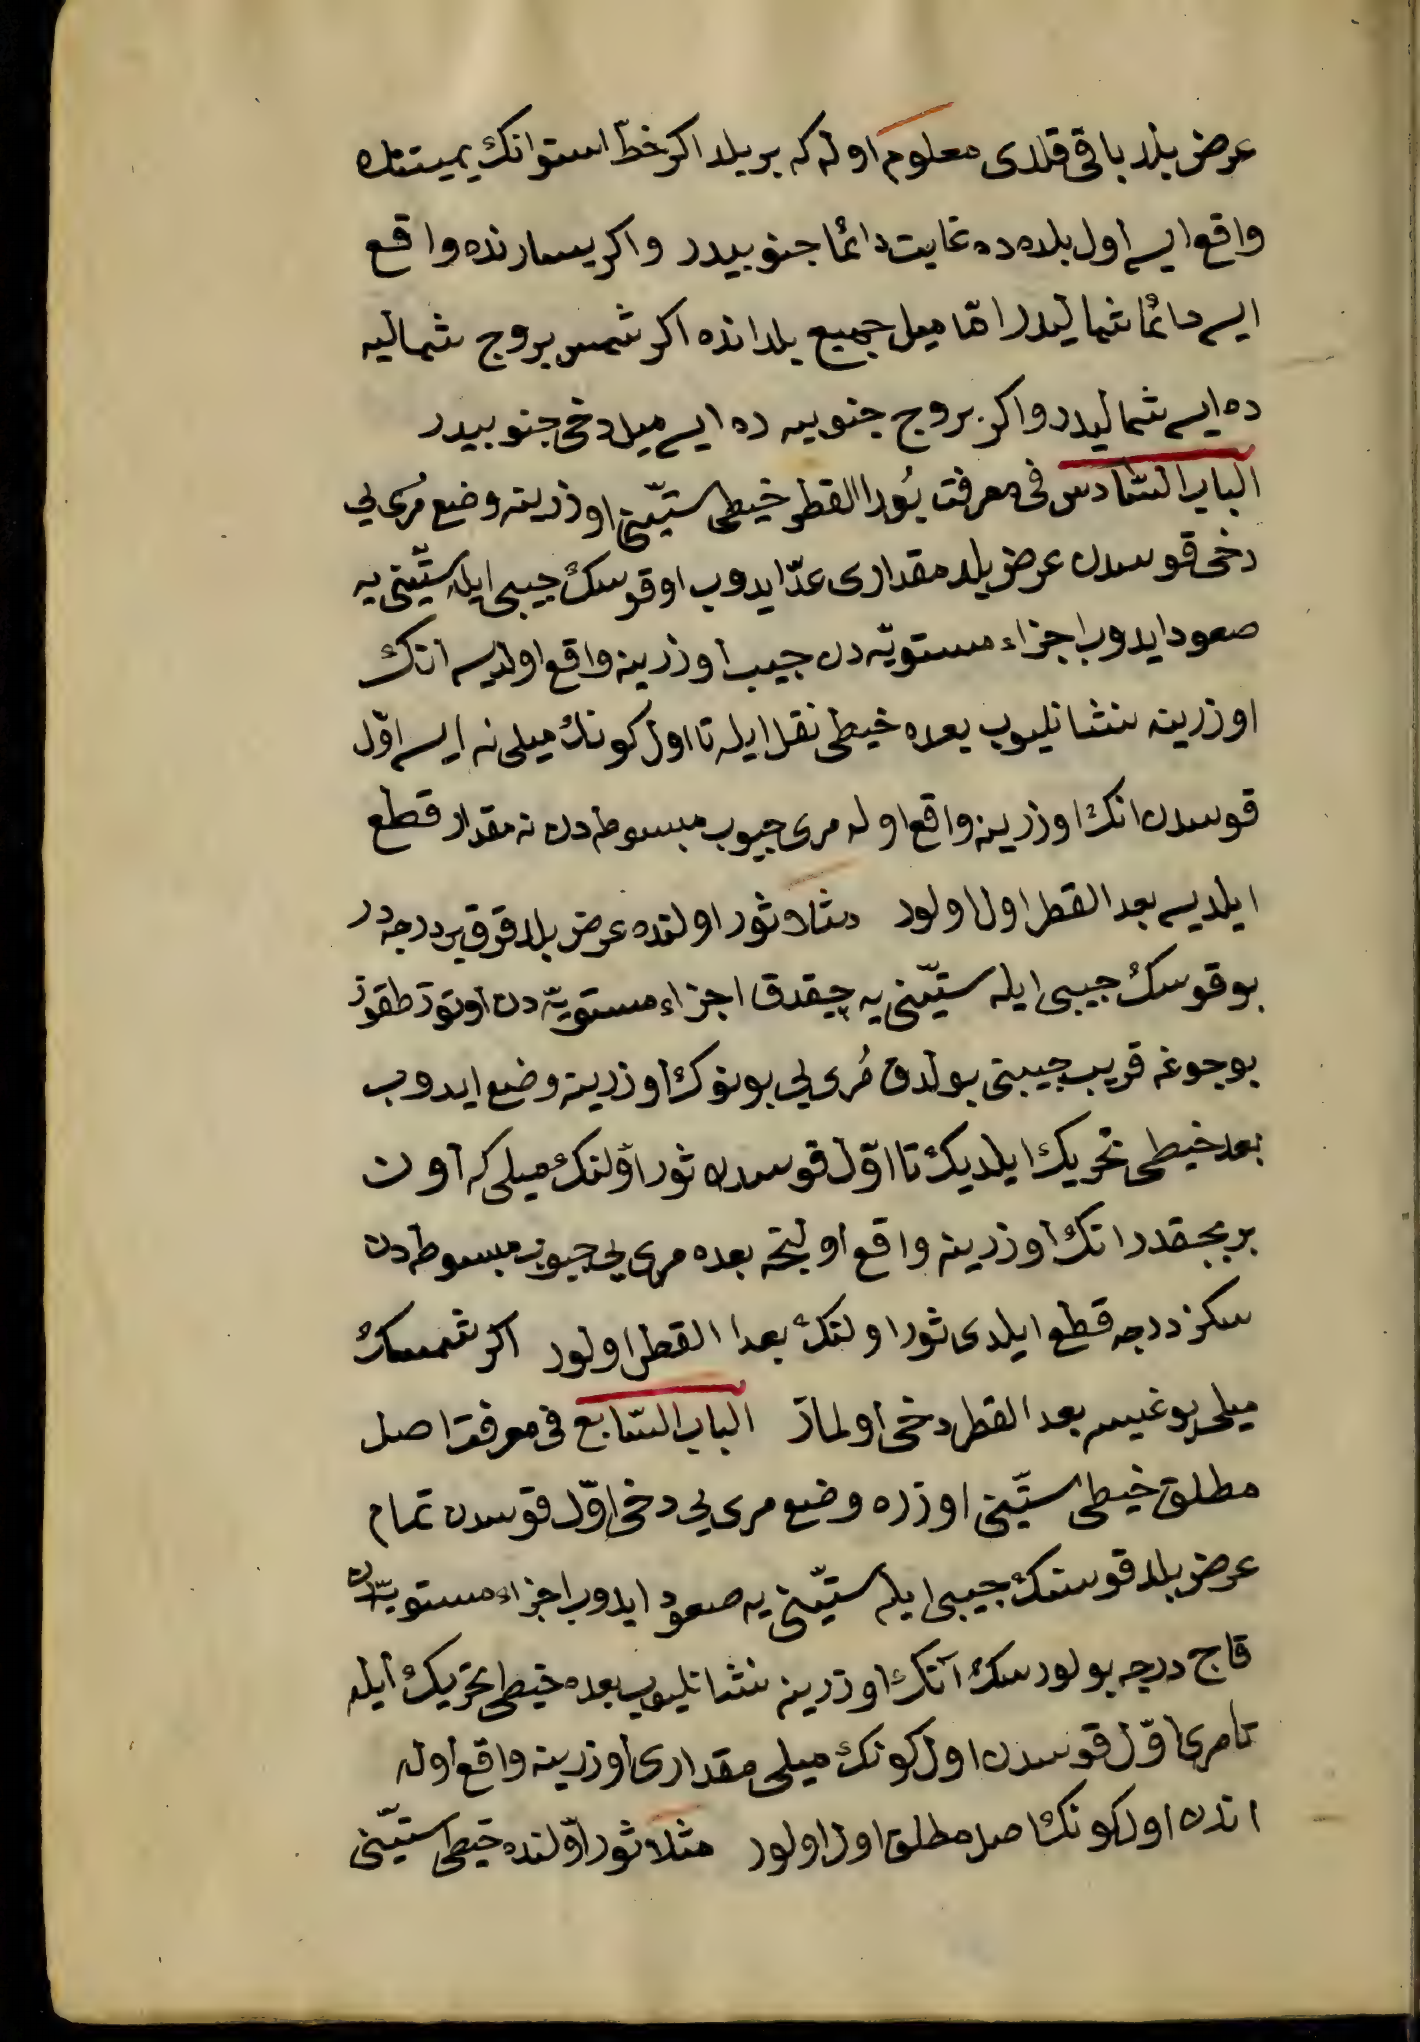 عرض بلد باقی قلدی معلوم اوله که بر بلد اکر خطّ استوانك يميننده
واقع ایسه اول بلده ده غایت دائما جنوبیدر واکر یسارنده واقع
ایسه دائما شمالیدر امّا میل جمیع بلدانده اکر شمس بروج شمالیه
ده ایسه شمالیدر واکر بروج جنوبیه ده ایسه میل دخی جنوبیدر
الباب السّادس فی معرفت بُعد القطر خیطی ستّینی اوزرینه وضع مُری یی
دخی قوسدن عرض بلد مقداری عدّ ایدوب اوقوسك جیبی ایله ستّینی یه
صعود ایدوب اجزاء مستویّه دن جیب اوزرینه واقع اولدیسه انك
اوزرینه نشانلیوب بعده خیطی نقل ایله تا اول کونك میلی نه ایسه اوّل
قوسدن انك اوزرینه واقع اوله مری جیوب مبسوطه دن نه مقدار قطع
ایلدیسه بعد القطر اول اولور مثلا ثور اولنده عرض بلد قرق بر درجه در
بو قوسك جیبی ایله ستّینی یه چیقدق اجزاء مستویّه دن اوتوز طقوز
بوجوغه قریب جیبنی بولدق مُری یی بونوك اوزرینه وضع ایدوب
بعد خیطی تحریك ایلدیك تا اوّل قوسدن ثور اوّلنك میلی که اون
بر بجقدر انك اوزرینه واقع اولنجه بعده مری یی جیوب مبسوطه دن
سکز درجه قطع ایلدی ثور اولنك بعد القطر اولور اکر شمسك
میلی یوغیسه بعد القطر دخی اولماز الباب السّابع فی معرفة اصل
مطلق خیطی ستّینی اوزره وضع مری یی دخی اوّل قوسدن تمام
عرض بلد قوسنك جیبی ایله ستّینی یه صعود ایدوب اجزاء مستویّه دن
قاج درجه بولورسك آنك اوزرینه نشانلیوب بعده خیطی تحریك ایله
تا مری اوّل قوسدن اول کونك میلی مقداری اوزرینه واقع اوله
اندن اول کونك اصل مطلق اول اولور مثلا ثور اوّلنده خیطی ستّینی